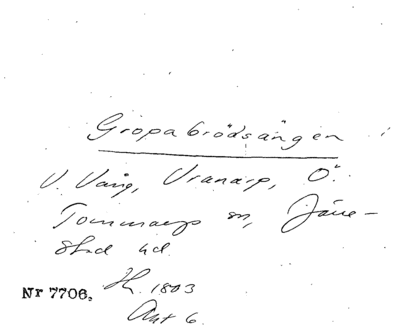 Gropabrödsängen
V. Vång, Vranarp, Ö.
Tommarps sn, Järre-
stad hd.
Nr 7706. H. 1803
Akt 6.